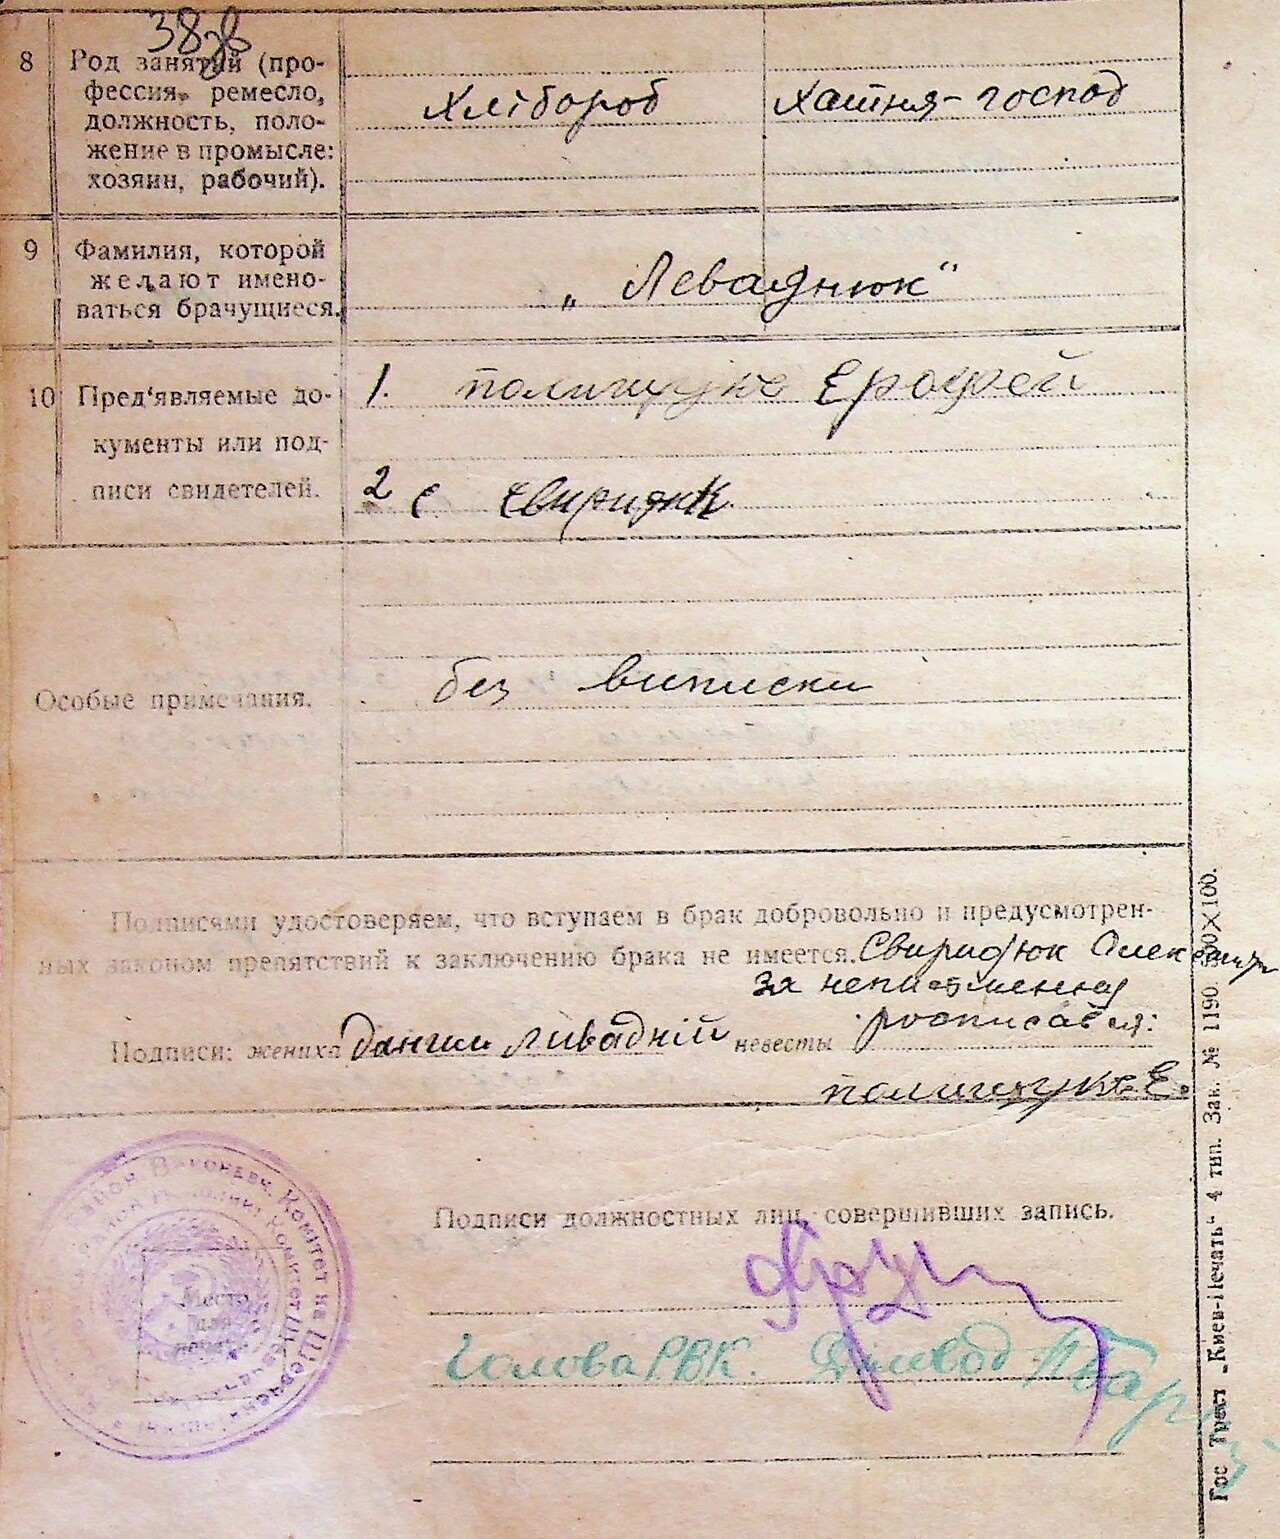 38зв
8 Род занятий (про-
фессия, ремесло,
должность, поло-
жение в промысле:
хозяин, рабочий).
Хлібороб
Хатня-господ
9 Фамилия, которой
желают имено-
ваться брачущиеся.
„Леваднюк“
10 Пред'являемые до-
кументы или под-
писи свидетелей.
1. полищуке Ерофей
2 С Свиридюк
Особые примечания.
без виписки
Подписями удостоверяем, что вступаем в брак добровольно и предусмотрен-
ных законом препятствий к заключению брака не имеется. Свиридюк
за неписменна
росписався:
Подписи: жениха Данил Ливадній невесты
полищуке Е.
Место
для
печати
Район. Виконавч. Комітет на Шевченк
Подписи должностных лиц, совершивших запись.
Голова РВК.
Гос Трест „Киев-Печать“ 4 тип. Зак. № 1190. 530×100.